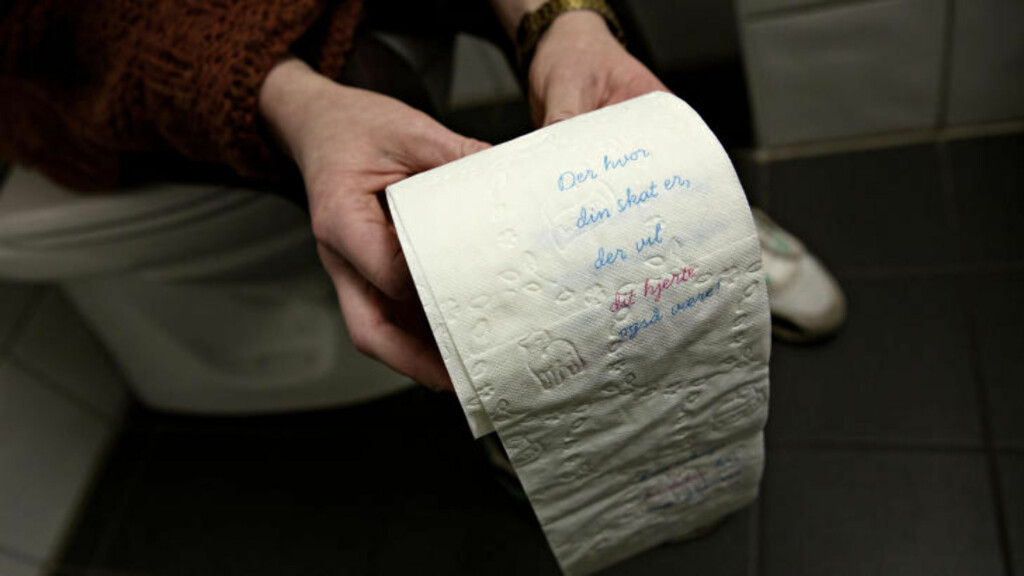 Der hvor
din skat er,
der vil
dit hjerte
også være!